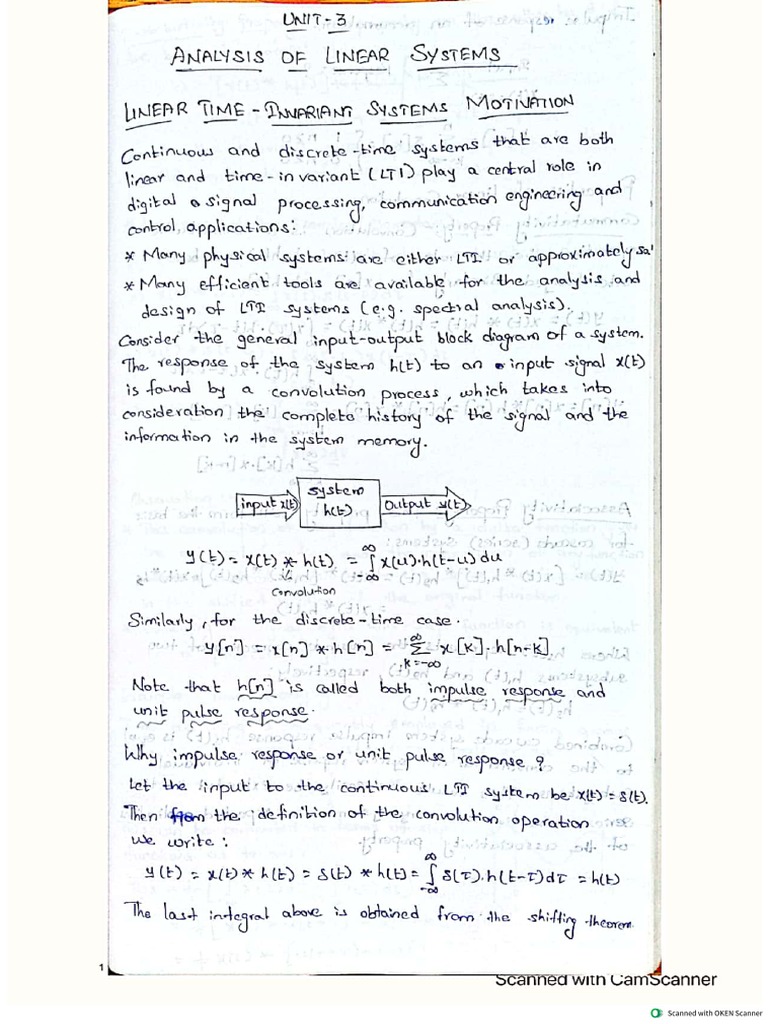 UNIT-3
ANALYSIS OF LINEAR SYSTEMS
LINEAR TIME-INVARIANT SYSTEMS MOTIVATION
Continuous and discrete-time systems that are both
linear and time-invariant (LTI) play a central role in
digital signal processing, communication engineering and
control applications:
* Many physical systems are either LTI or approximately so
* Many efficient tools are available for the analysis and
design of LTI systems (e.g. spectral analysis).
Consider the general input-output block diagram of a system.
The response of the system h(t) to an input signal x(t)
is found by a convolution process, which takes into
consideration the complete history of the signal and the
information in the system memory.
input x(t)
system
h(t)
Output y(t)
y(t) = x(t) * h(t) = ∫_{-∞}^{∞} x(u)·h(t-u) du
convolution
Similarly, for the discrete-time case.
y[n] = x[n] * h[n] = Σ_{k=-∞}^{∞} x[k]·h[n-k]
Note that h[n] is called both impulse response and
unit pulse response.
Why impulse response or unit pulse response?
Let the input to the continuous LTI system be x(t) = δ(t).
Then from the definition of the convolution operation
we write:
y(t) = x(t) * h(t) = δ(t) * h(t) = ∫_{-∞}^{∞} δ(τ)·h(t-τ)dτ = h(t)
The last integral above is obtained from the shifting theorem
1
Scanned with CamScanner
Scanned with OKEN Scanner